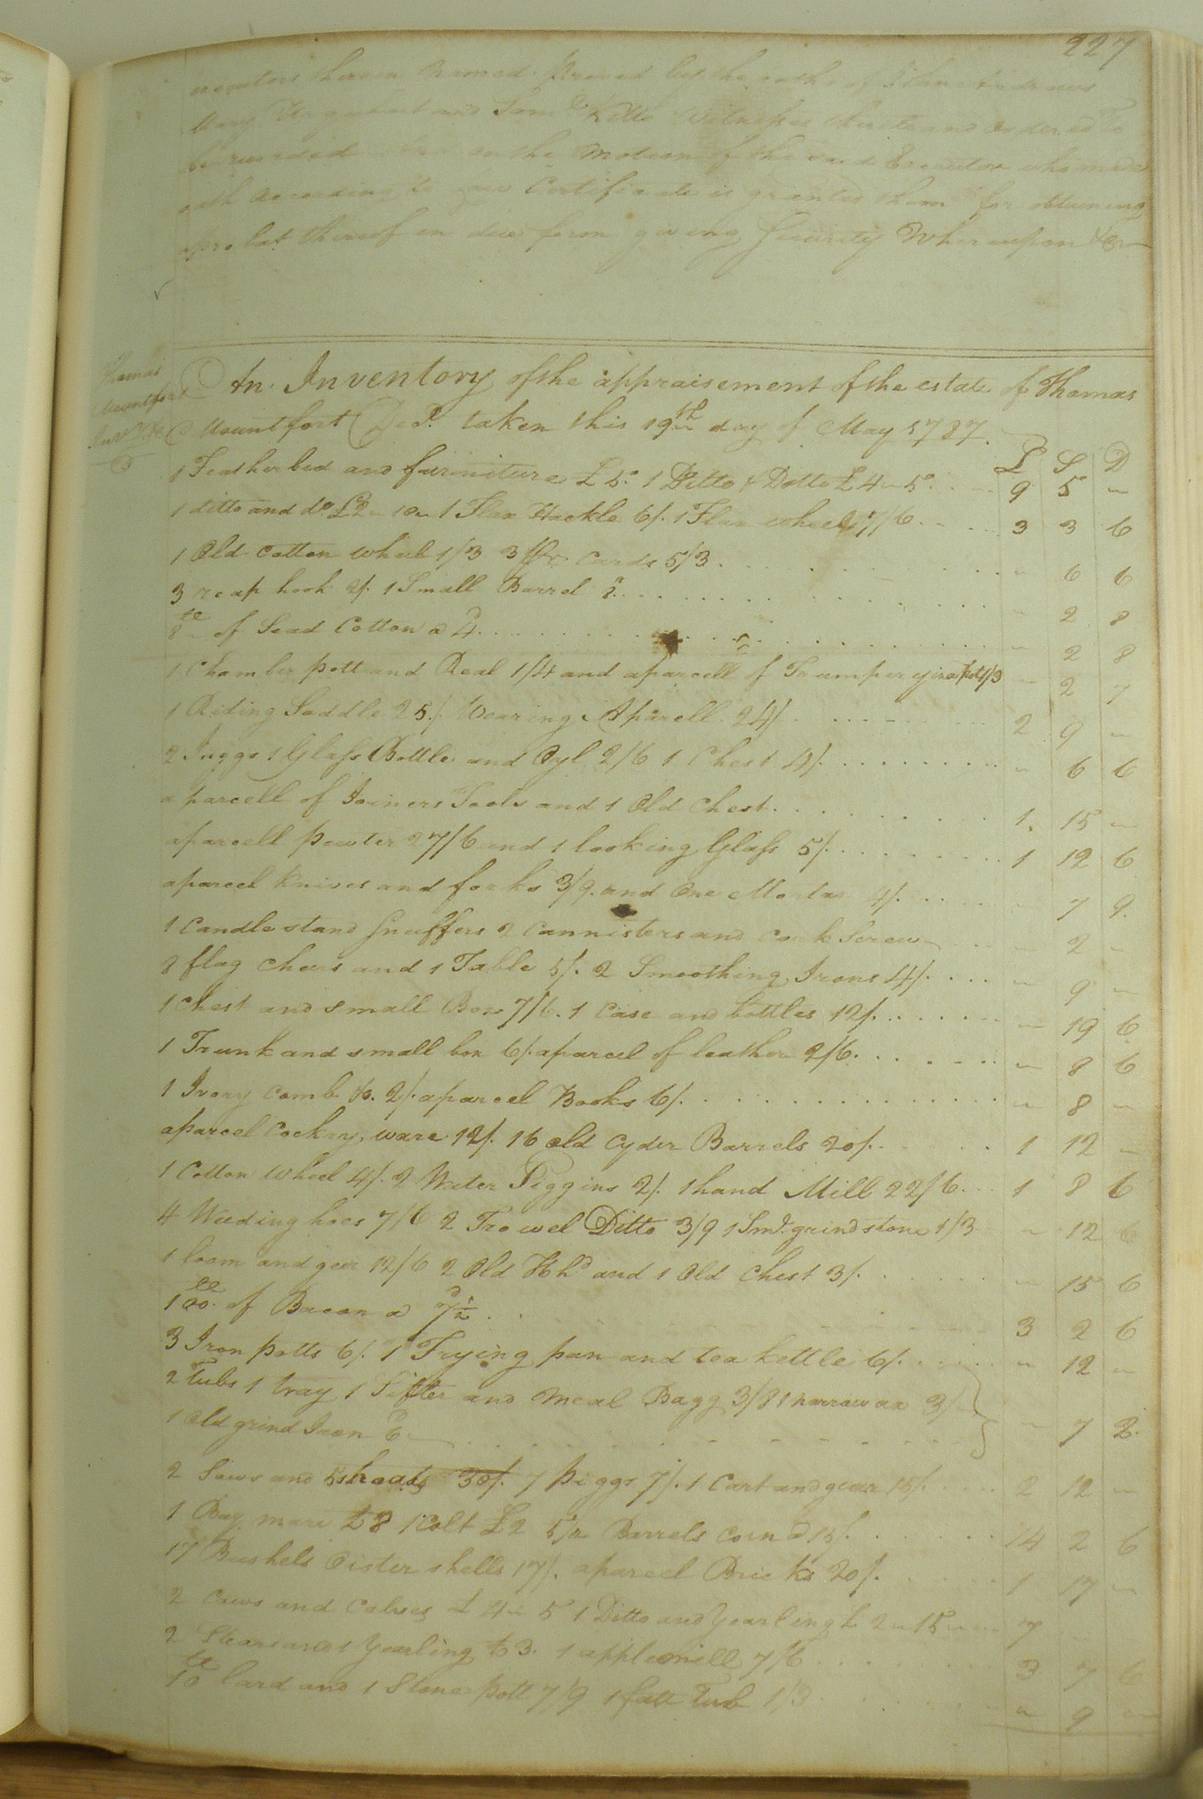 227
executors therein Named Proved by the oaths of John Andrews
Mary Urquhart and Sam.l Kello Witnesses thereto and ordered To
be recorded and on the Motion of the said Executor who made
oath According to Law Certificate is granted them for obtaining
aprobat thereof in due form giving Security Whereupon &c
Thomas
Mountfort
Inv.y &c
An Inventory of the appraisement of the estate of Thomas
Mountfort Dec.d taken this 19th day of May 1787.
£ S D
1 Feather bed and furniture £ 5. 1 Ditto & Ditto £ 4 - 5. 9 5 -
1 ditto and do £2 - 10 - 1 Flax Hackle 6/. 1 Flax wheel 7/6 3 3 6
1 Old cotton wheel 1/3 3 pr cards 5/3 - 6 6
3 reap hook 2/. 1 Small Barrel 8. - 2 8
8 lb of Sead Cotton a 4. - 2 8
1 Chamber pott and Real 1/4 and aparcell of Trumpery 1/3 - 2 7
1 Riding Saddle 25/. Wearing Aparell 24/ 2 9 -
2 Juggs 1 Glass Bottle and Oyl 2/6 1 Chest 4/. - 6 6
a parcell of Joiners Tools and 1 Old Chest. 1. 15 -
aparcell pewter 27/6 and 1 looking Glass 5/. 1 12 6
aparcel knives and forks 3/9. and One Mortar 4/. - 7 9.
1 Candle stand Snuffers 2 Cannisters and cork Screw - 2 -
8 flag chears and 1 Table 5/. 2 Smoothing Irons 4/. - 9 -
1 Chest and small Box 7/6. 1 case and bottles 12/. - 19 6
1 Trunk and small box 6/. aparcel of leather 2/6. - 8 6
1 Ivory Comb &c. 2/. aparcel Books 6/. - 8 -
aparcel Cockery ware 12/. 16 old Cyder Barrels 20/. 1 12 -
1 Cotton wheel 4/. 2 Water Piggins 2/. 1 hand Mill 22/6. 1 8 6
4 Weeding hoes 7/6 2 Trowel Ditto 3/9 1 Sm.l grindstone 1/3 - 12 6
1 loom and geer 12/6 2 Old Hhd and 1 Old Chest 3/. - 15 6
100 lb. of Bacon a 7½ 3 2 6
3 Iron potts 6/. 1 Frying pan and tea kettle 6/. - 12 -
2 Tubs 1 tray 1 Sifter and Meal Bagg 3/8 1 narrow ax 3/
1 Old grind Iron 6 - 7 2.
2 Sows and 5 shoats 30/. 7 piggs 7/. 1 Cart and gear 15/. 2 12 -
1 Bay mare £8 1 Colt £2 5½ Barrels corn a 15/. 14 2 6
17 Bushels Oister shells 17/. aparcel Bricks 20/. 1 17 -
2 Cows and Calves £ 4 - 5 1 Ditto and Yearling £ 2 - 15 - 7
2 Stears and 1 Yearling £3. 1 applemill 7/6 3 7 6
10 lb lard and 1 Stone pott 7/9 1 fatt Tub 1/3 - 9 -